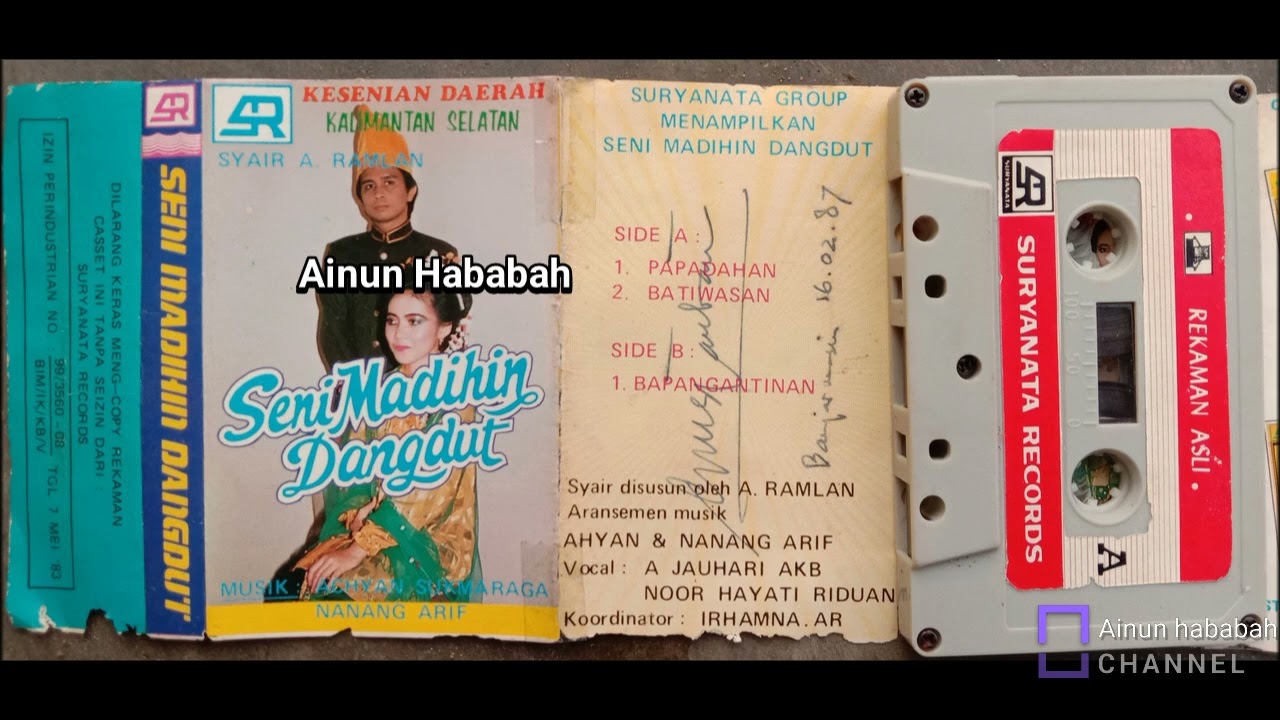 DILARANG KERAS MENG-COPY REKAMAN
CASSET INI TANPA SEIZIN DARI :
SURYANATA RECORDS
IZIN PERINDUSTRIAN NO : 99/3560-08 TGL 7 MEI 83
BIM/IK/KB/V
SR
SENI MADIHIN DANGDUT
SR
KESENIAN DAERAH
KALIMANTAN SELATAN
SYAIR A. RAMLAN
Ainun Hababah
Seni Madihin
Dangdut
MUSIK : ACHYAN SUKMARAGA
NANANG ARIF
SURYANATA GROUP
MENAMPILKAN
SENI MADIHIN DANGDUT
SIDE A :
1. PAPADAHAN
2. BATIWASAN
SIDE B :
1. BAPANGANTINAN
Banjarmasin 16.02.87
Syair disusun oleh A. RAMLAN
Aransemen musik
AHYAN & NANANG ARIF
Vocal : A JAUHARI AKB
NOOR HAYATI RIDUAN
Koordinator : IRHAMNA. AR
SR
SURYANATA
SURYANATA RECORDS
100
50
0
A
• REKAMAN ASLI •
Ainun hababah
CHANNEL